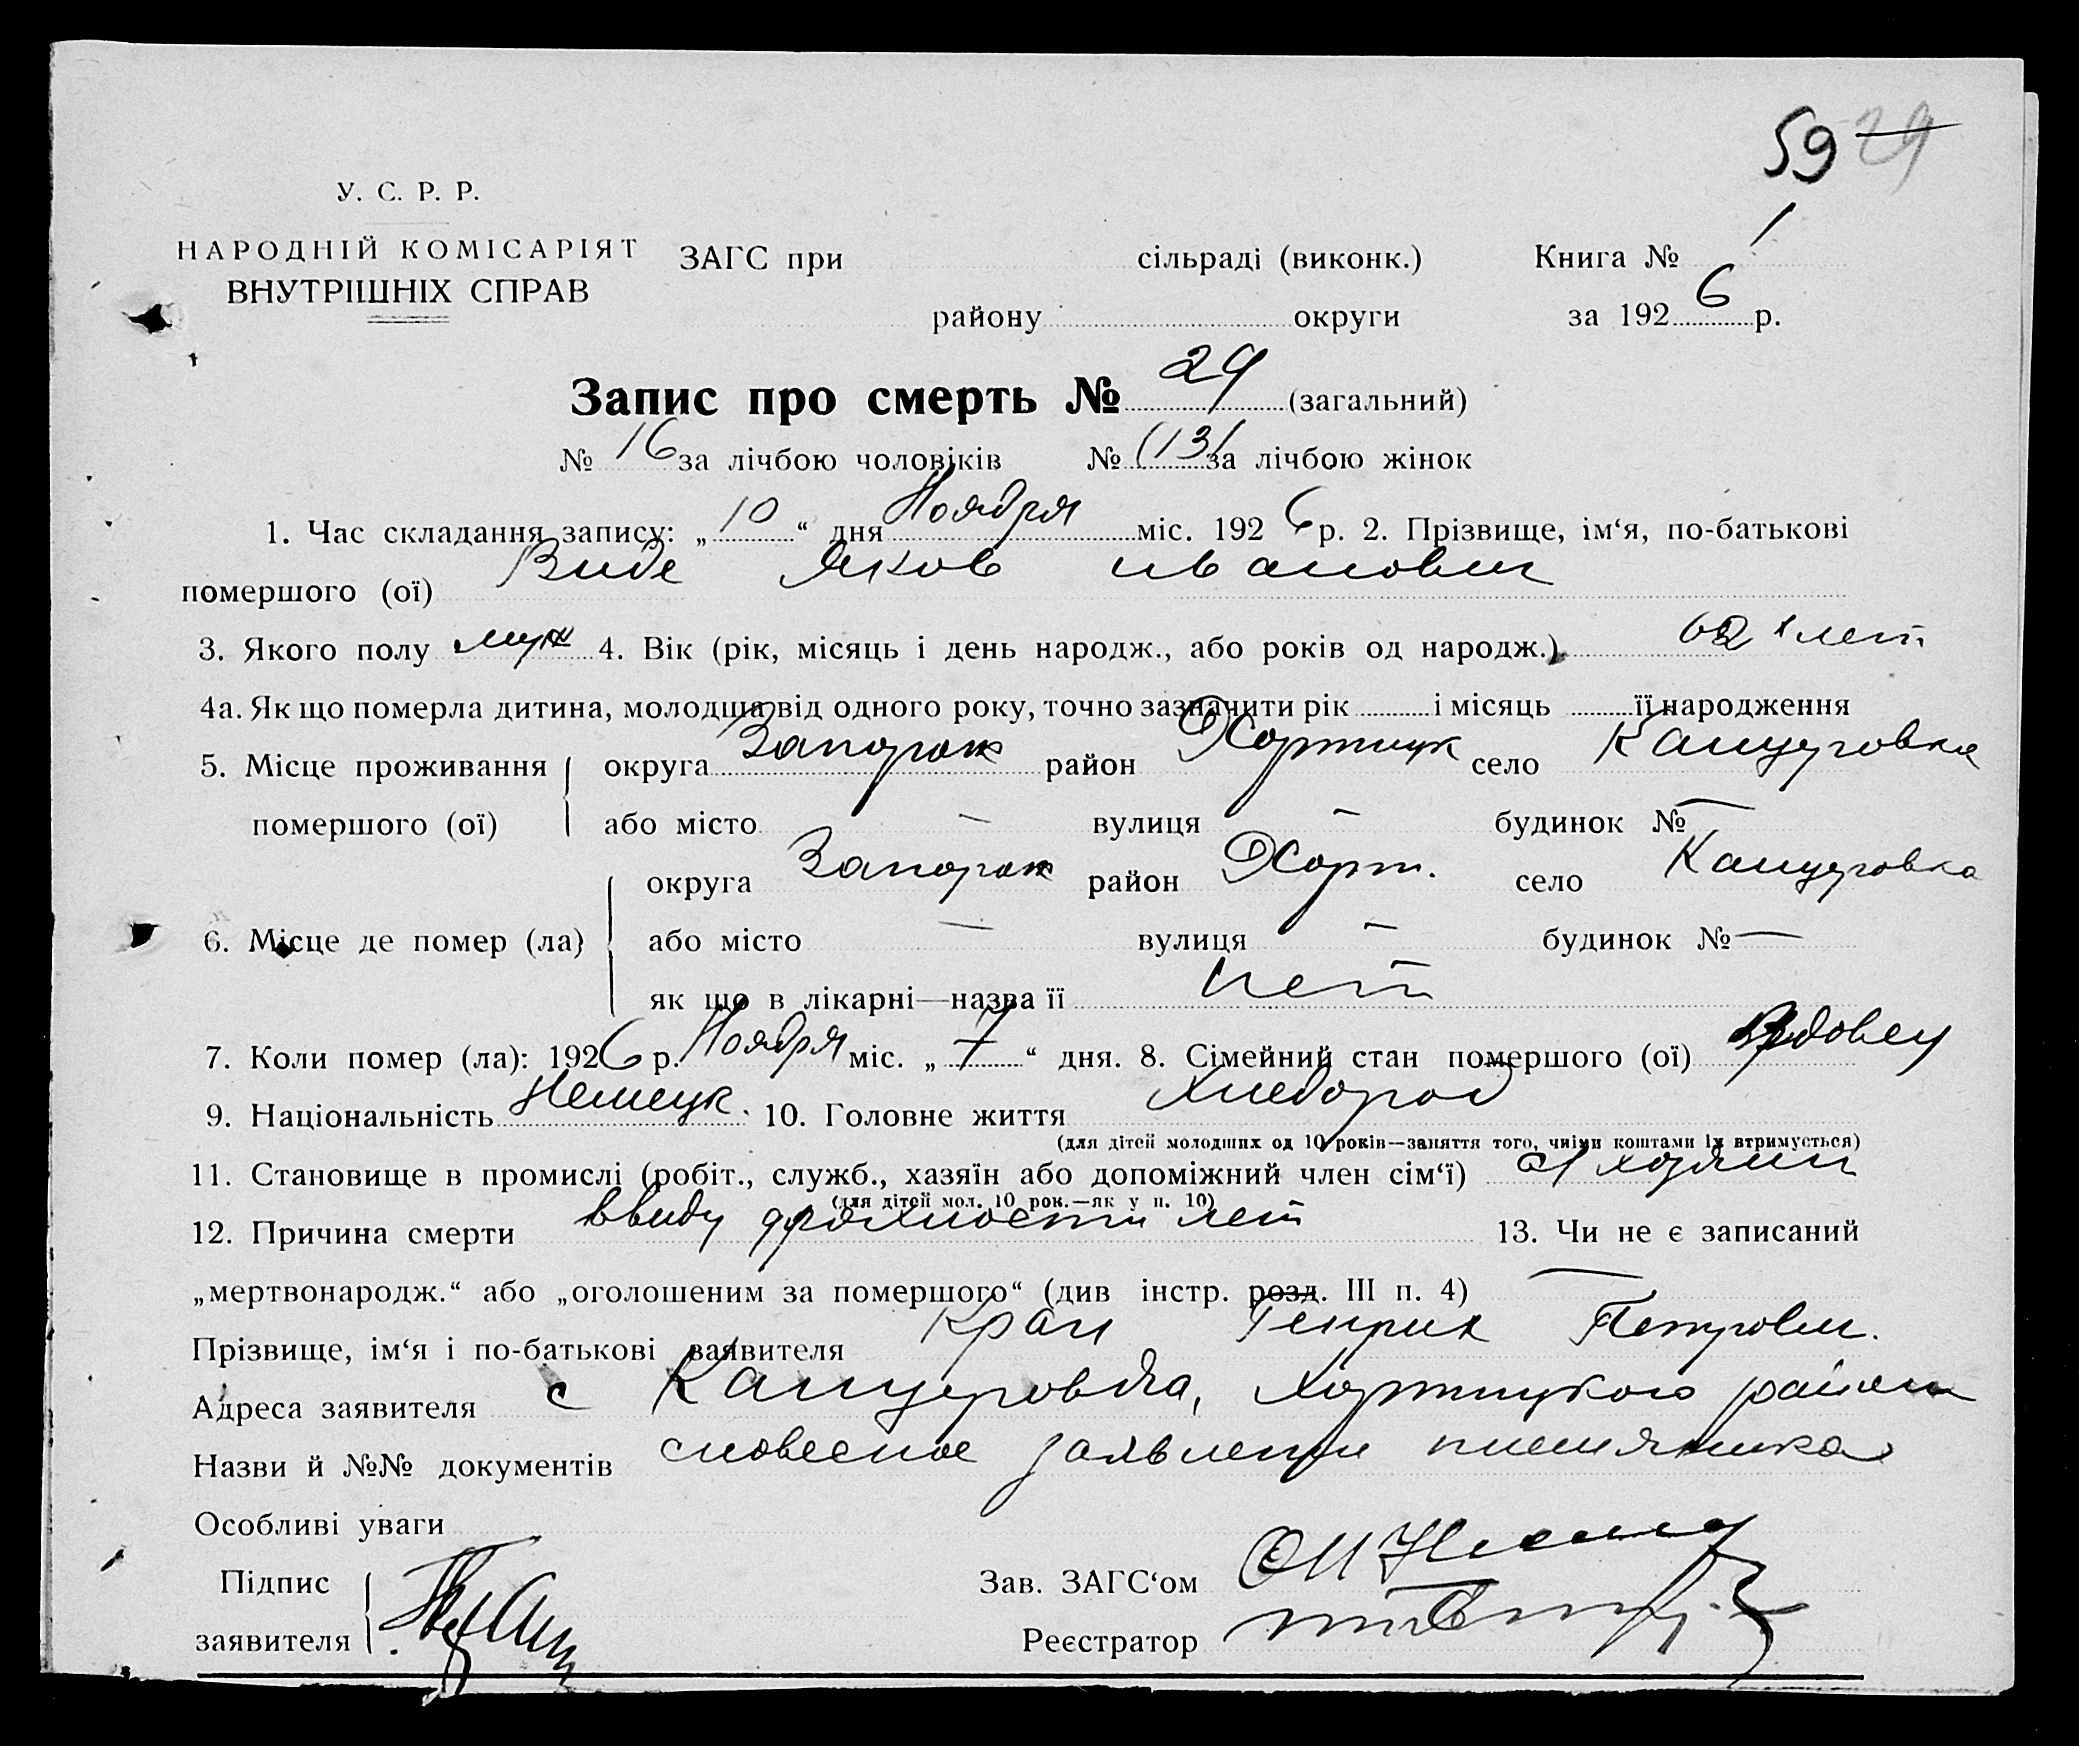 59 29
У. С. Р. Р.
НАРОДНІЙ КОМІСАРІЯТ
ВНУТРІШНІХ СПРАВ
ЗАГС при сільраді (виконк.) Книга № 1
району округи за 1926 р.
Запис про смерть № 29 (загальний)
№ 16 за лічбою чоловіків № (13) за лічбою жінок
1. Час складання запису: „10“ дня Ноября міс. 1926 р. 2. Прізвище, ім‘я, по-батькові
помершого (ої) Виде Яков Иванович
3. Якого полу муж 4. Вік (рік, місяць і день народж., або років од народж.) лет
4а. Як що померла дитина, молодша від одного року, точно зазначити рік і місяць її народження
5. Місце проживання округа Запорож район Хортицк село Канцеровка
помершого (ої) або місто — вулиця — будинок № —
округа Запорож район Хорт. село Канцеровка
6. Місце де помер (ла) або місто — вулиця — будинок № —
як що в лікарні—назва її нет
7. Коли помер (ла): 1926 р. Ноября міс. „7“ дня. 8. Сімейний стан помершого (ої) Вдовец
9. Національність Немецк. 10. Головне життя Хлебороб
(для дітей молодших од 10 років—заняття того, чиїми коштами їх втримується)
11. Становище в промислі (робіт., служб., хазяїн або допоміжний член сім‘ї) хозяин
(для дітей мол. 10 рок.—як у п. 10)
12. Причина смерти ввиду дряхлости лет 13. Чи не є записаний
„мертвонародж.“ або „оголошеним за помершого“ (див інстр. розд. III п. 4) —
Прізвище, ім‘я і по-батькові заявителя Кран Генрих Петрович.
Адреса заявителя с Канцеровка, Хортицкого района
Назви й №№ документів словесное заявление племянника
Особливі уваги
Підпис Зав. ЗАГС‘ом
заявителя Реєстратор